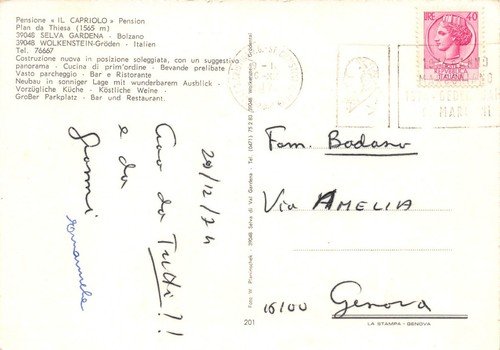 Pensione «IL CAPRIOLO» Pension
Plan da Thiesa (1565 m)
39048 SELVA GARDENA - Bolzano
39048 WOLKENSTEIN-Gröden - Italien
Tel. 76667
Costruzione nuova in posizione soleggiata, con un suggestivo
panorama - Cucina di prim'ordine - Bevande prelibate
Vasto parcheggio - Bar e Ristorante
Neubau in sonniger Lage mit wunderbarem Ausblick -
Vorzügliche Küche - Köstliche Weine -
Großer Parkplatz - Bar und Restaurant.
29/12/74
Ciao da Tutti?!
e da
Gianni
Emanuela
Foto W. Planinschek - 39048 Selva di Val Gardena - Tel. (0471) 75 2 83 39048 Wolkenstein / Grödental
201
LIRE 40
ITALIANA
Fam. Badano
Via AMELIA
16100 Genova
LA STAMPA - GENOVA